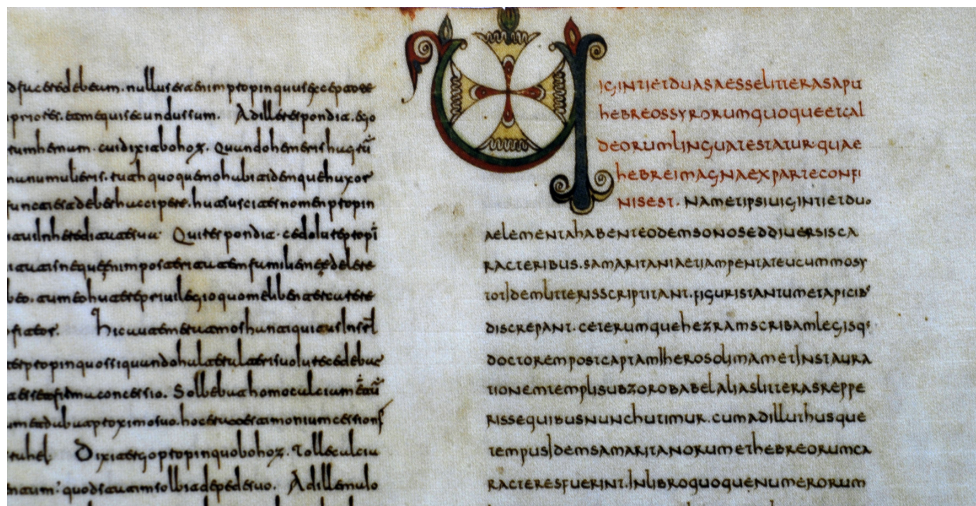 d facere debeam. nullus est enim propinquus excepto te
prior es. et me qui secundus sum. At ille respondit. ego
rum emam. cui dixit booz. Quando emeris agrũ
manu mulieris. ruth quoque moabitidem que uxor
functi debes accipere. ut suscites nomen propin
tui in hereditate sua. Qui respondit. cedo iuri propĩ
itatis neque enim posteritatem familie me delere
beo. tu meo utere privilegio quo me libenter carere
fiteor. hic autem erat mos antiquitus In srl
ter propinquos si quando alter alteri suo iure cedebat
esset firma concessio. Solbebat homo calciamentũ
um et dabat proximo suo. hoc erat testimonium cessionis
srahel. Dixit ergo propinquo booz. Tolle calcia
mentum: quod statim solbit a pede suo. At ille
UIGINTI ET DUAS ESSE LITTERAS APU
HEBREOS SYRORUM QUOQUE ET CAL
DEORUM LINGUA TESTATUR. QUAE
HEBREI MAGNA EX PARTE CONFI
NIS EST. NAM ET IPSI UIGINTI ET DUO
AELEMENTA HABENT EODEM SONO SED DIUERSIS CA
RACTERIBUS. SAMARITANI AETIAM PENTATEUCUM MOSY
TOTIDEM LITTERIS SCRIPTITANT. FIGURIS TANTUM ET APICIB'
DISCREPANT. CETERUMQUE HEZRAM SCRIBAM LEGISQ'
DOCTOREM POST CAPTAM IHEROSOLIMAM ET INSTAURA
TIONEM TEMPLI SUB ZOROBABEL ALIAS LITTERAS REPPE
RISSE QUIBUS NUNC HUTIMUR. CUM AD ILLUT HUSQUE
TEMPUS IDEM SAMARITANORUM ET HEBREORUM CA
RACTERES FUERINT. IN LIBRO QUOQUE NUMERORUM